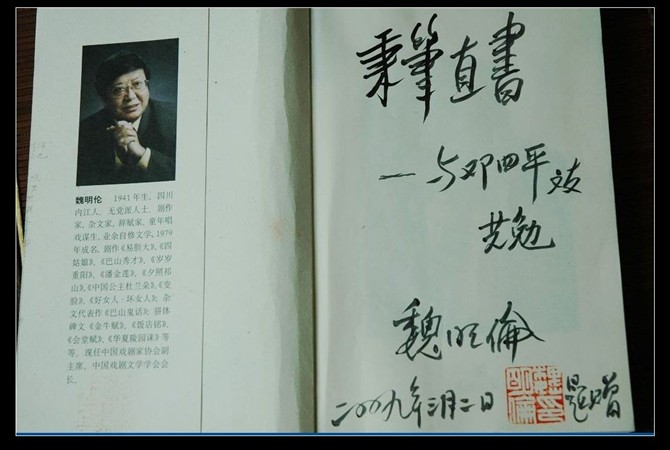 魏明伦　1941年生，四川
内江人。无党派人士。剧作
家、杂文家、辞赋家。童年唱
戏谋生，业余自修文学，1979
年成名。剧作《易胆大》、《四
姑娘》、《巴山秀才》、《岁岁
重阳》、《潘金莲》、《夕照祁
山》、《中国公主杜兰朵》、《变
脸》、《好女人·坏女人》；杂
文代表作《巴山鬼话》；骈体
碑文《金牛赋》、《饭店铭》、
《会堂赋》、《华夏陵园诔》等
等。现任中国戏剧家协会副
主席，中国戏剧文学学会会
长。
秉筆直書
—与邓四平友
共勉
魏明倫
二00九年三月二日 題贈